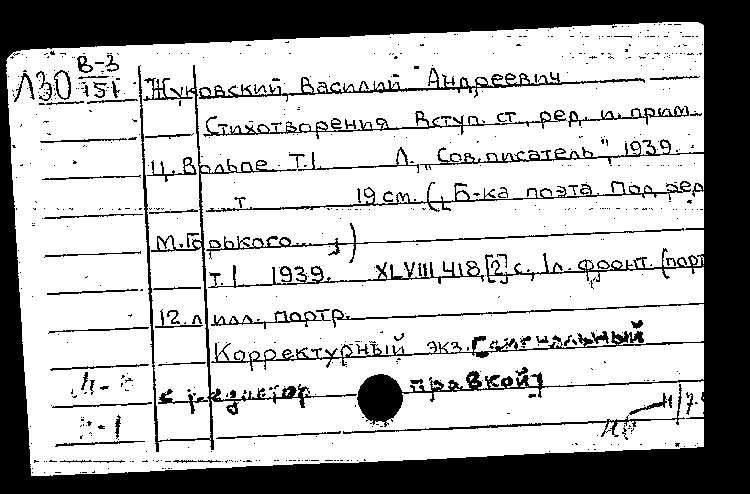 Л30 В-3
151
Жуковский, Василий Андреевич
Стихотворения Вступ. ст., ред. и прим.
Ц. Вольпе Т.1 Л., „Сов. писатель", 1939.
т. 19 см. („Б-ка поэта. Под ред
М. Горького")
т.1 1939. XLVIII, 418, [2] с., 1 л. фронт. (порт
12 л илл., портр.
Корректурный экз. [Сигнальный
с редактор правкой]